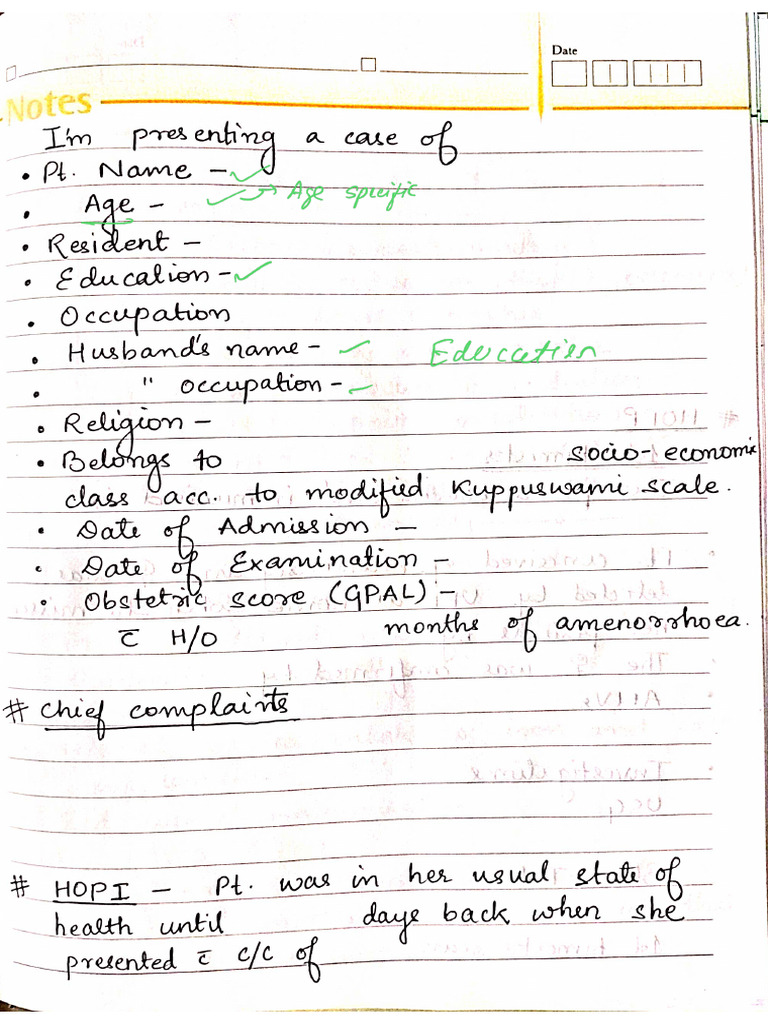 Date
Notes
I'm presenting a case of
• Pt. Name - ✓
• Age - ✓ → Age specific
• Resident -
• Education - ✓
• Occupation
• Husband's name - ✓ Education
• " occupation - ✓
• Religion -
• Belongs to socio-economic
class acc. to modified Kuppuswami scale.
• Date of Admission -
• Date of Examination -
• Obstetric score (GPAL) :-
c̅ H/O months of amenorrhoea.
# Chief complaints
# HOPI - Pt. was in her usual state of
health until days back when she
presented c̅ c/c of